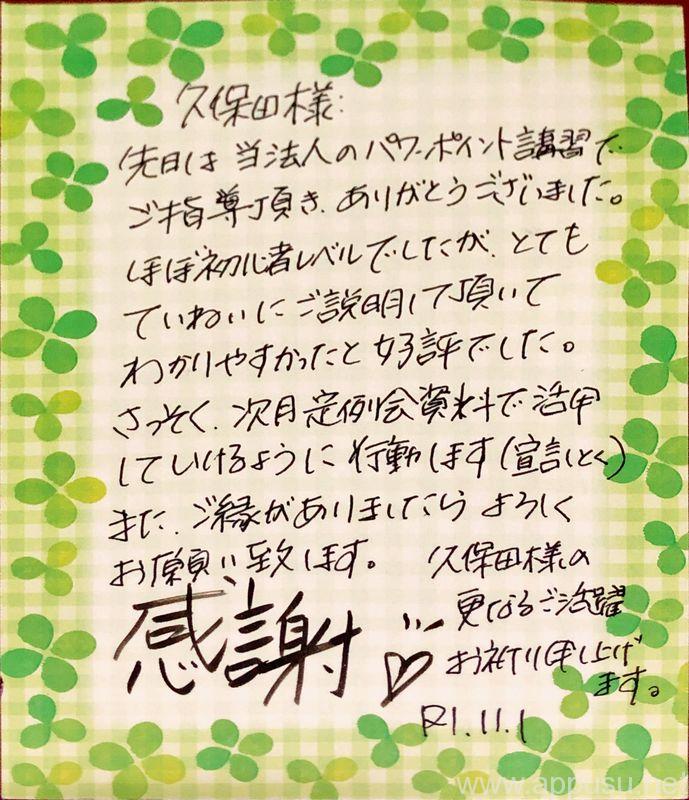 久保田様:
先日は当法人のパワーポイント講習で
ご指導頂き、ありがとうございました。
ほぼ初心者レベルでしたが、とても
ていねいにご説明して頂いて
わかりやすかったと好評でした。
さっそく、次月定例会資料で活用
していけるように行動します(宣言しとく)
また、ご縁がありましたらよろしく
お願い致します。
感謝
久保田様の
更なるご活躍
お祈り申し上げ
ます。
R1.11.1
www.appusu.net